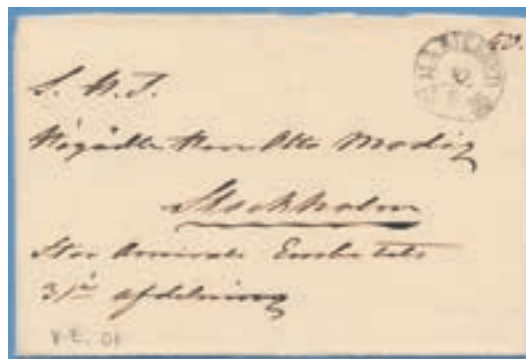 50.
S. H. T.
Högädle Herr Otto Modig
Stockholm
Stor Amirals Embetets
3/je afdelning
V.E. 01